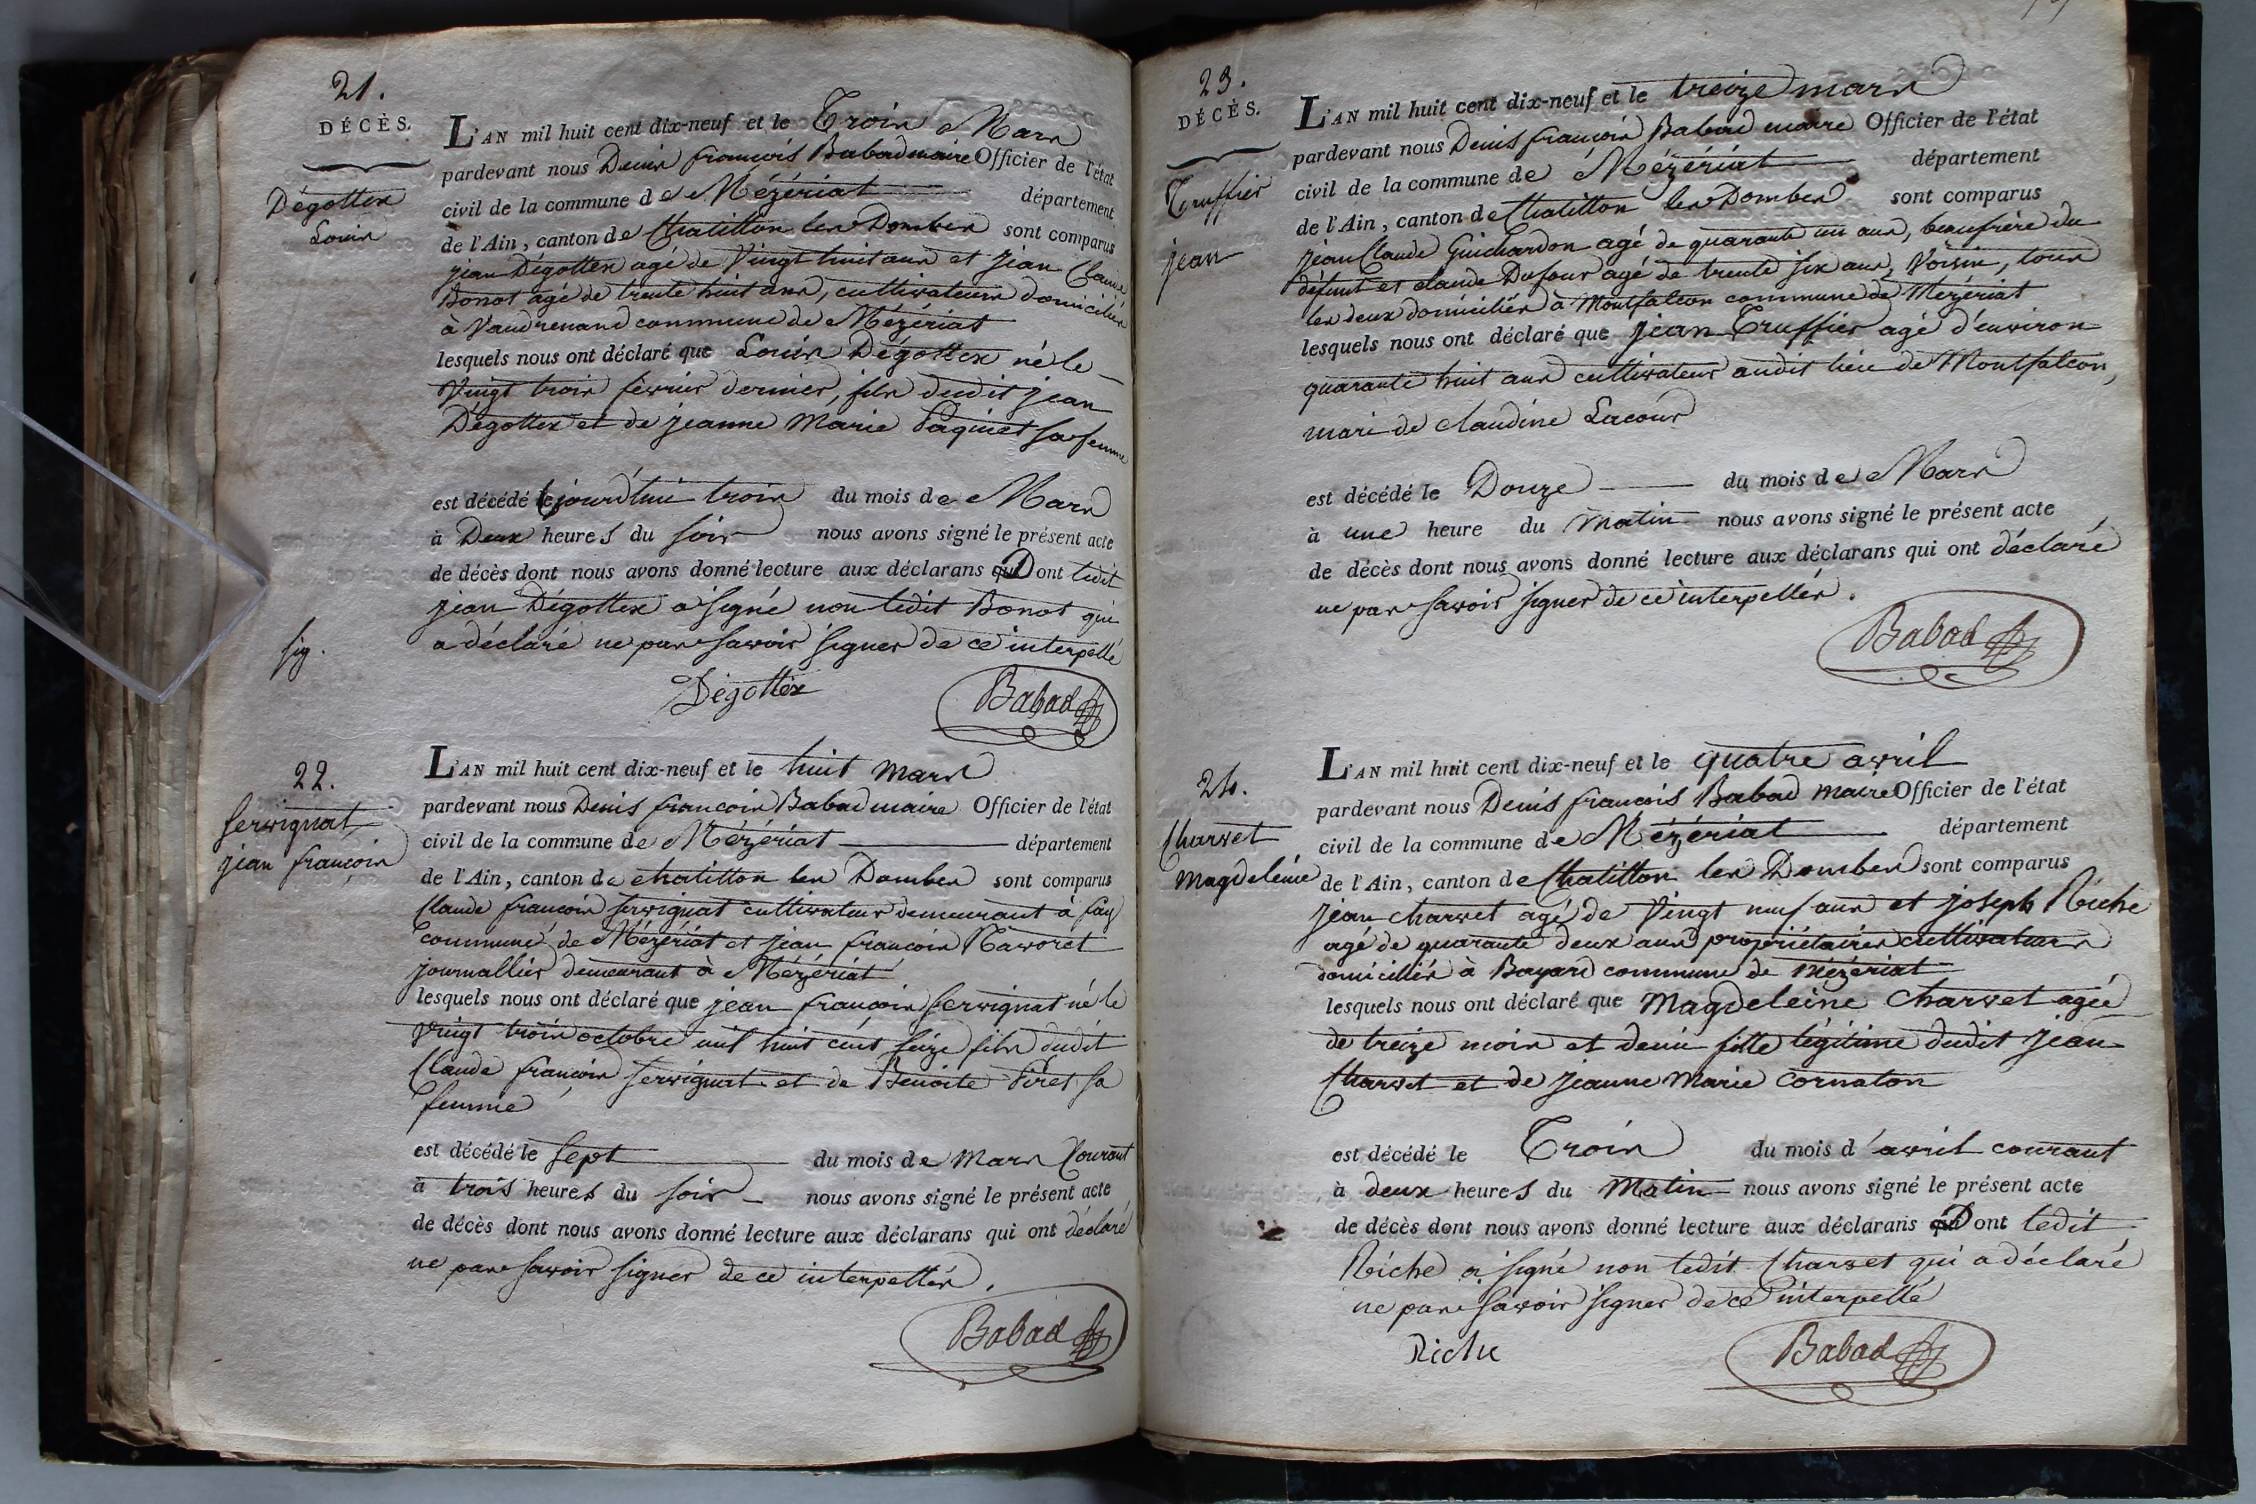 21.
DÉCÈS.
Dégottex
Louis
L'AN mil huit cent dix-neuf et le Trois Mars
pardevant nous Denis françois Babad maire Officier de l'état
civil de la commune de Mézériat département
de l'Ain, canton de Chatillon les Dombes sont comparus
jean Dégottex agé de Vingt huit ans et jean Claude
Bonot agé de trente huit ans, cultivateurs domiciliés
à Vaudrenand commune de Mézériat
lesquels nous ont déclaré que Louis Dégottex né le
Vingt trois février dernier, fils dudit jean
Dégottex et de jeanne Marie Paquet sa femme
est décédé le jourd'hui trois du mois de Mars
à Deux heures du soir nous avons signé le présent acte
de décès dont nous avons donné lecture aux déclarans Dont ledit
jean Dégottex a signé non ledit Bonot qui
a déclaré ne pas savoir signer de ce interpellé
sig.
Dégottex Babad
22.
Servignat
jean françois
L'AN mil huit cent dix-neuf et le huit mars
pardevant nous Denis françois Babad maire Officier de l'état
civil de la commune de Mézériat département
de l'Ain, canton de chatillon les Dombes sont comparus
Claude françois servignat cultivateur demeurant à fay
commune de Mézériat et jean françois Navoret
journallier demeurant à Mézériat
lesquels nous ont déclaré que jean françois servignat né le
vingt trois octobre mil huit cent seize fils dudit
Claude françois servignat et de Benoite Piret sa
femme
est décédé le sept du mois de Mars Courant
à trois heures du soir nous avons signé le présent acte
de décès dont nous avons donné lecture aux déclarans qui ont déclaré
ne pas savoir signer de ce interpellés.
Babad
23.
DÉCÈS.
Truffier
jean
L'AN mil huit cent dix-neuf et le treize mars
pardevant nous Denis françois Babad maire Officier de l'état
civil de la commune de Mézériat département
de l'Ain, canton de Chatillon les Dombes sont comparus
jean Claude Guichardon agé de quarante un ans, beaufrère du
défunt et claude Dufour agé de trente six ans, Voisin, tous
les deux domiciliés à Montfalcon commune de Mézériat
lesquels nous ont déclaré que jean Truffier agé d'environ
quarante huit ans cultivateur audit lieu de Montfalcon,
mari de claudine Lacour
est décédé le Douze du mois de Mars
à une heure du Matin nous avons signé le présent acte
de décès dont nous avons donné lecture aux déclarans qui ont déclaré
ne pas savoir signer de ce interpellés.
Babad
24.
Charvet
Magdeleine
L'AN mil huit cent dix-neuf et le quatre avril
pardevant nous Denis françois Babad maire Officier de l'état
civil de la commune de Mézériat département
de l'Ain, canton de Chatillon les Dombes sont comparus
jean charvet agé de Vingt neuf ans et joseph Riche
agé de quarante deux ans propriétaires cultivateurs
domiciliés à Bayard commune de Mézériat
lesquels nous ont déclaré que Magdeleine charvet agée
de treize mois et demi fille légitime dudit jean
Charvet et de jeanne Marie Cornaton
est décédé le Trois du mois d'avril courant
à deux heures du Matin nous avons signé le présent acte
de décès dont nous avons donné lecture aux déclarans Dont ledit
Riche a signé non ledit Charvet qui a déclaré
ne pas savoir signer de ce interpellé
Riche Babad